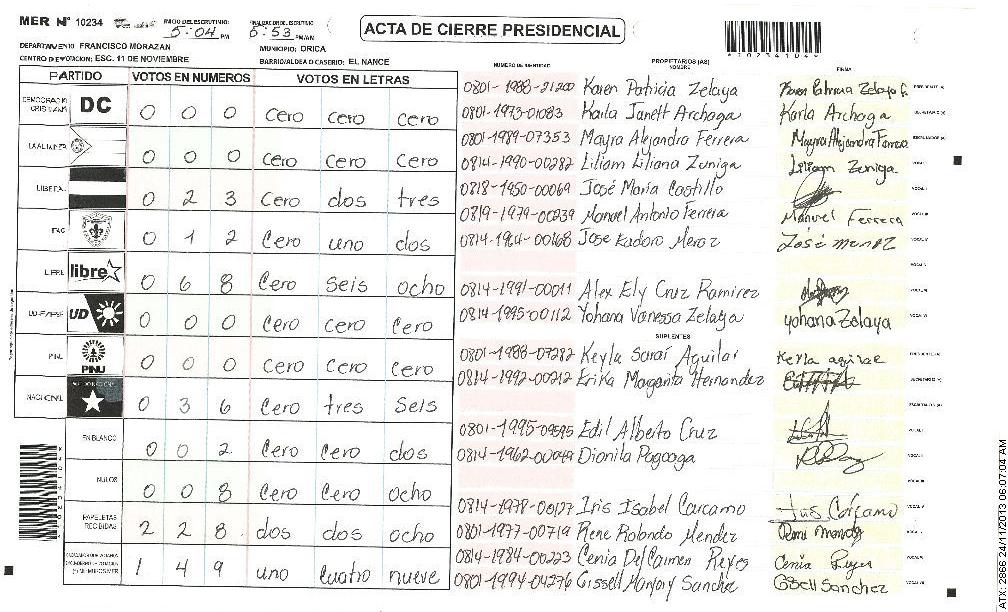 MER Nº 10234
INICIO DEL ESCRUTINIO: 5:04 PM
FINALIZACION DEL ESCRUTINIO: 5:53 PM/AM
ACTA DE CIERRE PRESIDENCIAL
*0234104*
DEPARTAMENTO: FRANCISCO MORAZAN
MUNICIPIO: ORICA
CENTRO DE VOTACION: ESC. 11 DE NOVIEMBRE
BARRIO/ALDEA O CASERIO: EL NANCE
PARTIDO VOTOS EN NUMEROS VOTOS EN LETRAS
DEMOCRACIA CRISTIANA DC 0 0 0 Cero Cero Cero
LA ALIANZA 0 0 0 Cero Cero Cero
LIBERAL 0 2 3 Cero dos tres
PAC 0 1 2 Cero uno dos
LIBRE libre 0 6 8 Cero Seis ocho
UD 0 0 0 Cero Cero Cero
PINU PINU 0 0 0 Cero Cero Cero
NACIONAL 0 3 6 Cero tres Seis
EN BLANCO 0 0 2 Cero Cero dos
NULOS 0 0 8 Cero Cero ocho
PAPELETAS RECIBIDAS 2 2 8 dos dos ocho
1 4 9 uno Cuatro nueve
NUMERO DE IDENTIDAD PROPIETARIOS (AS) NOMBRE FIRMA
0801-1988-21200 Karen Patricia Zelaya PRESIDENTE (A)
0801-1973-01083 Karla Janett Archaga Karla Archaga SECRETARIO (A)
0801-1989-07353 Mayra Alejandra Ferrera Mayra Alejandra Ferrera ESCRUTADOR (A)
0814-1990-00282 Liliam Liliana Zuniga Liliam Zuniga VOCAL I
0818-1950-00069 José Maria Castillo VOCAL II
0819-1979-00239 Manuel Antonio Ferrera Manuel Ferrera VOCAL III
José VOCAL IV
VOCAL V
0814-1991-00011 Alex Ely Cruz Ramirez
0814-1995-00112 Yohana Vanessa Zelaya Yohana Zelaya
SUPLENTES
0801-1988-07282 Keyla Sarai Aguilar Keyla aguilar PRESIDENTE (A)
0814-1992-00212 Erika Margarita Hernandez SECRETARIO (A)
0801-1995-09595 Edil Alberto Cruz VOCAL I
0814-1962-00049 Dionila
0814-1978-00127 Iris Isabel Carcamo Carcamo
0801-1977-00719 Rene Rolando Mendez
0814-1984-00223 Cenia Del Carmen Reyes Cenia Reyes
0801-1994-04276 Gissell Marjory Sanchez Gissell Sanchez
ATX: 2866 24/11/2013 06:07:04 AM